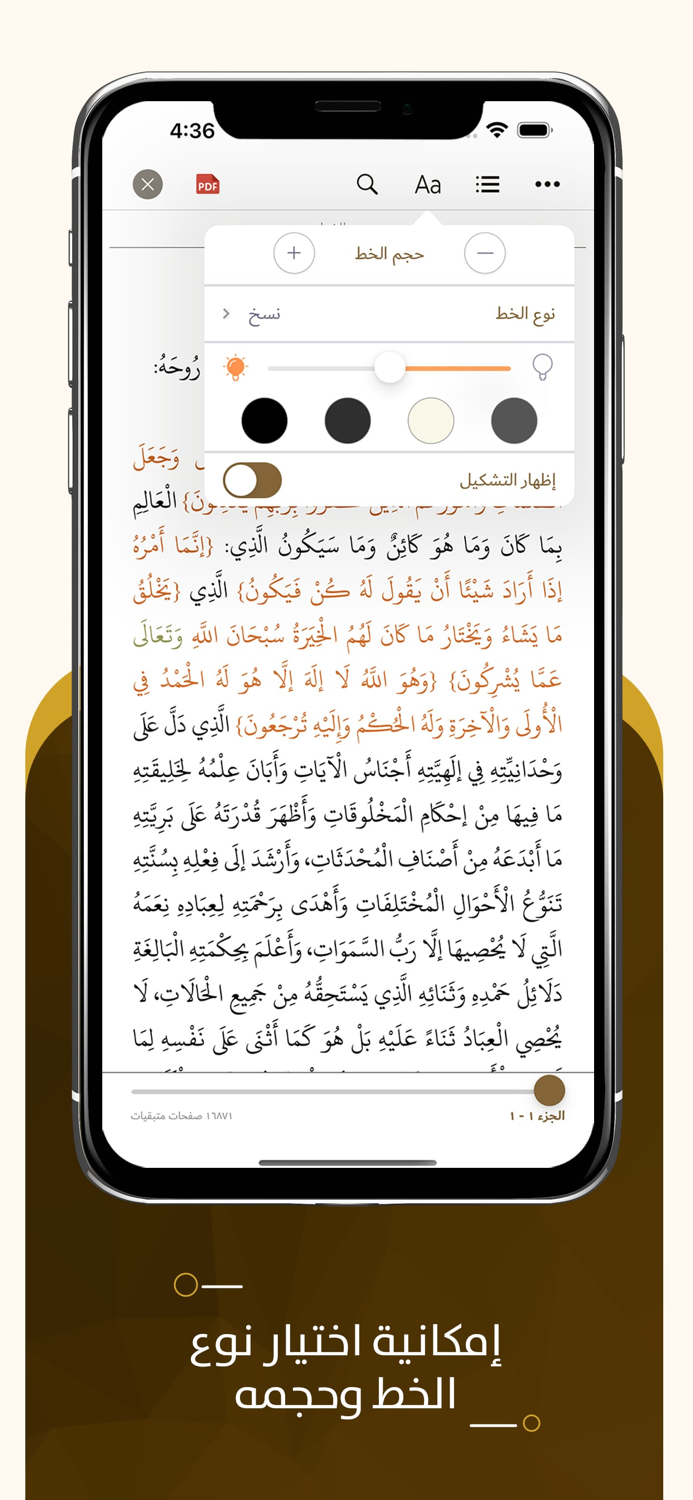 4:36
PDF
Aa
حجم الخط
نوع الخط
نسخ
رُوحَهُ:
وَجَعَلَ
إظهار التشكيل
الْعَالِمِ
بِمَا كَانَ وَمَا هُوَ كَائِنٌ وَمَا سَيَكُونُ الَّذِي: {إِنَّمَا أَمْرُهُ
إِذَا أَرَادَ شَيْئًا أَنْ يَقُولَ لَهُ كُنْ فَيَكُونُ} الَّذِي {يَخْلُقُ
مَا يَشَاءُ وَيَخْتَارُ مَا كَانَ لَهُمُ الْخِيَرَةُ سُبْحَانَ اللَّهِ وَتَعَالَى
عَمَّا يُشْرِكُونَ} {وَهُوَ اللَّهُ لَا إِلَهَ إِلَّا هُوَ لَهُ الْحَمْدُ فِي
الْأُولَى وَالْآخِرَةِ وَلَهُ الْحُكْمُ وَإِلَيْهِ تُرْجَعُونَ} الَّذِي دَلَّ عَلَى
وَحْدَانِيَّتِهِ فِي إِلَهِيَّتِهِ أَجْنَاسُ الْآيَاتِ وَأَبَانَ عِلْمُهُ لِخَلِيقَتِهِ
مَا فِيهَا مِنْ إِحْكَامِ الْمَخْلُوقَاتِ وَأَظْهَرَ قُدْرَتَهُ عَلَى بَرِيَّتِهِ
مَا أَبْدَعَهُ مِنْ أَصْنَافِ الْمُحْدَثَاتِ، وَأَرْشَدَ إِلَى فِعْلِهِ بِسُنَّتِهِ
تَنَوُّعُ الْأَحْوَالِ الْمُخْتَلِفَاتِ وَأَهْدَى بِرَحْمَتِهِ لِعِبَادِهِ نِعَمَهُ
الَّتِي لَا يُحْصِيهَا إِلَّا رَبُّ السَّمَوَاتِ، وَأَعْلَمَ بِحِكْمَتِهِ الْبَالِغَةِ
دَلَائِلُ حَمْدِهِ وَثَنَائِهِ الَّذِي يَسْتَحِقُّهُ مِنْ جَمِيعِ الْحَالَاتِ، لَا
يُحْصِي الْعِبَادُ ثَنَاءً عَلَيْهِ بَلْ هُوَ كَمَا أَثْنَى عَلَى نَفْسِهِ لِمَا
الجزء ١ - ١
١٦٨٧١ صفحات متبقيات
إمكانية اختيار نوع
الخط وحجمه